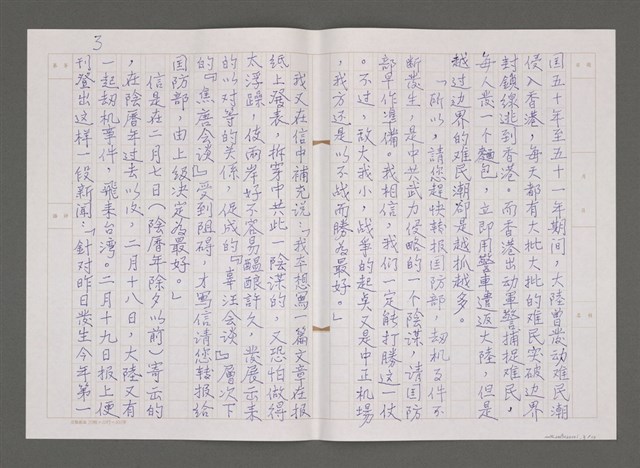 国五十年至五十一年期间，大陸曾发动难民潮
侵入香港，每天都有大批大批的难民突破边界
封鎖線逃到香港。而香港出动軍警捕捉难民，
每人发一个麵包，立即用警車遣返大陸，但是
越过边界的难民潮卻是越抓越多。
「所以，請您趕快转报国防部，劫机事件不
断发生，是中共武力侵略的一个陰谋，请国防
部早作準備。我相信，我们一定能打勝这一仗
。不过，敌大我小，战争的起点又是中正机場
，我方还是以不战而勝為最好。」
我又在信中補充说：「我本想寫一篇文章在报
纸上發表，拆穿中共此一陰谋的，又恐怕做得
太浮躁，使两岸好不容易醖釀許久，发展出来
的以对等的关係，促成的『辜汪会谈』層次下
的『焦唐会谈』受到阻碍，才寫信请您转报给
国防部，由上級決定為最好。」
信是在二月七日（陰曆年除夕以前）寄出的
，在陰曆年过去以後，二月十八日，大陸又有
一起劫机事件，飛来台湾。二月十九日报上便
刊登出这样一段新闻：「針对昨日发生今年第一
3